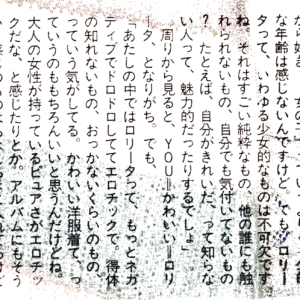 な年齢は感じないんですけど。でも、ロリー
タって、いわゆる少女的なものは不可欠です
ね。それはすごい純粋なもの、他の誰にも触
れられないもの、自分でも気付いてないもの
？ たとえば、自分がきれいだって知らな
い人って、魅力的だったりするでしょ」
周りから見ると、YOU＝かわいい＝ロリ
ータ、となりがち。でも、
「あたしの中ではロリータって、もっとネガ
ティブでドロドロしててエロチックで、得体
の知れないもの、おっかないくらいのもの、
っていう気がしてる。かわいい洋服着て、っ
ていうのももちろんいいと思うんだけどね。
大人の女性が持っているピュアさがエロチッ
クだな、と感じたりとか。アルバムにもそう